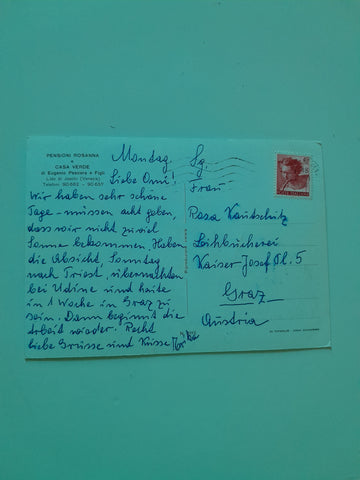 PENSIONI ROSANNA
e
CASA VERDE
di Eugenio Pescara e Figli
Lido di Jesolo (Venezia)
Telefoni 90682 - 90657
Montag,
Liebe Omi!
Wir haben sehr schöne
Tage - müssen acht geben,
dass wir nicht zuviel
Sonne bekommen. Haben
die Absicht, Sonntag
nach Triest, übernachten
bei Udine und heute
in 1 Woche in Graz zu
sein. Dann beginnt die
Arbeit wieder. Recht
liebe Grüsse und Küsse
Sg.
Frau
Rosa Kautschitz
Leihbücherei
Kaiser Josef Pl. 5
Graz
Austria